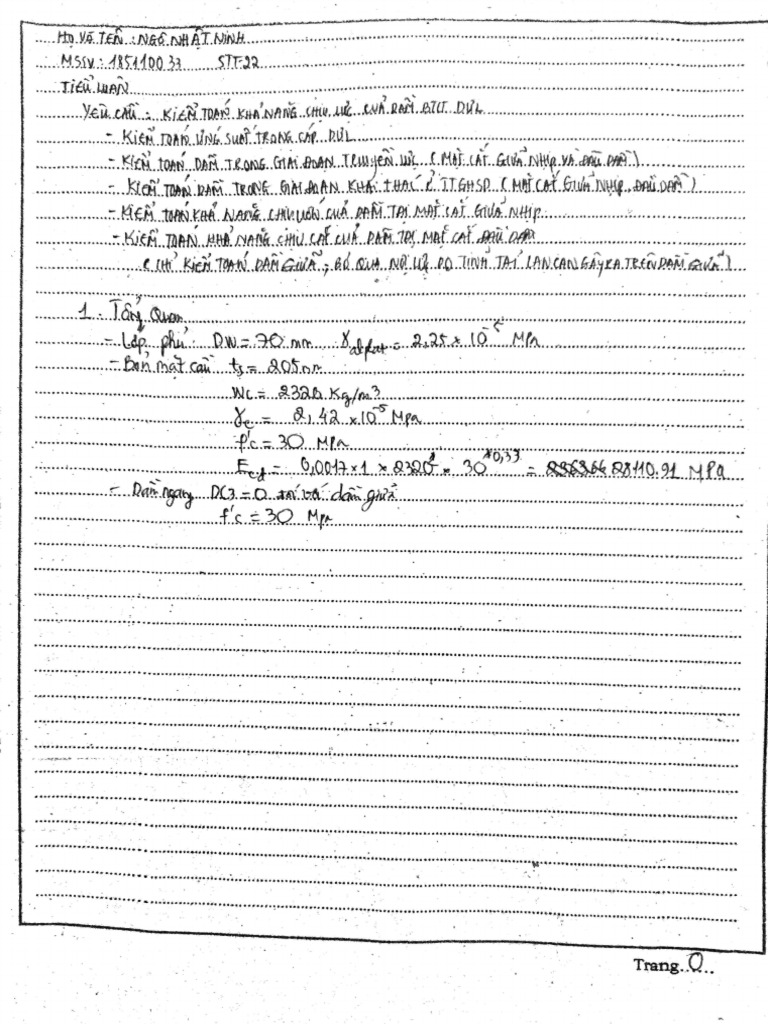 HỌ VÀ TÊN : NGÔ NHẬT NINH
MSSV : 185110033 STT-22
TIỂU LUẬN
YÊU CẦU : KIỂM TOÁN KHẢ NĂNG CHỊU LỰC CỦA DẦM BTCT DƯL
- KIỂM TOÁN ỨNG SUẤT TRONG CÁP DƯL
- KIỂM TOÁN DẦM TRONG GIAI ĐOẠN TRUYỀN LỰC ( MẶT CẮT GIỮA NHỊP VÀ ĐẦU DẦM )
- KIỂM TOÁN DẦM TRONG GIAI ĐOẠN KHAI THÁC Ở TTGHSD ( MẶT CẮT GIỮA NHỊP, ĐẦU DẦM )
- KIỂM TOÁN KHẢ NĂNG CHỊU UỐN CỦA DẦM TẠI MẶT CẮT GIỮA NHỊP
- KIỂM TOÁN KHẢ NĂNG CHỊU CẮT CỦA DẦM TẠI MẶT CẮT ĐẦU DẦM
( CHỈ KIỂM TOÁN DẦM GIỮA, BỎ QUA NỘI LỰC DO TĨNH TẢI LAN CAN GÂY RA TRÊN DẦM GIỮA )
1. Tổng Quan
- Lớp phủ DW = 70 mm γasphat = 2,25 × 10⁻⁵ MPa
- Bản mặt cầu ts = 205 mm
Wc = 2320 Kg/m3
γc = 2,42 × 10⁻⁵ Mpa
f'c = 30 MPa
= 28110.91 MPa
- Dầm ngang DC3 = 0 đối với dầm giữa
f'c = 30 Mpa
Trang..0..